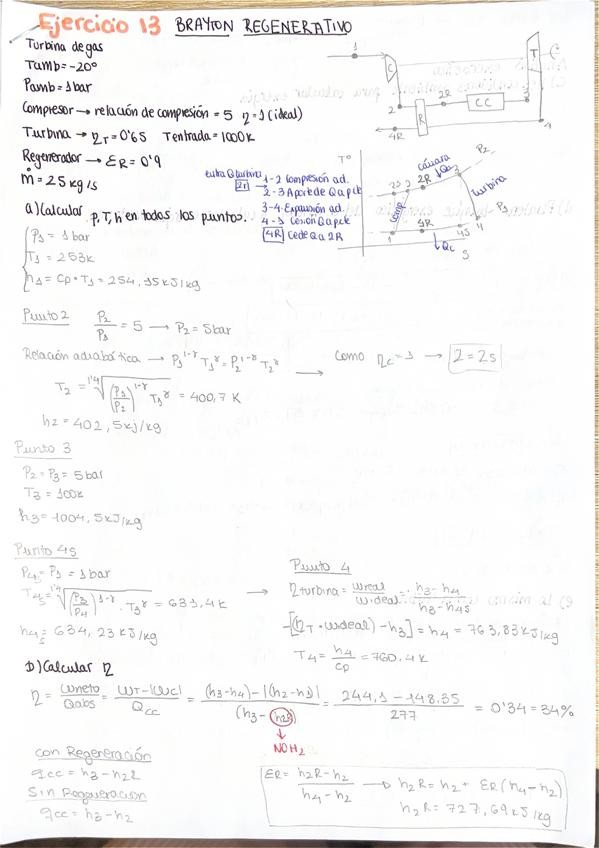 Ejercicio 13 BRAYTON REGENERATIVO
Turbina de gas
Tamb = -20°
Pamb = 1 bar
Compresor → relación de compresión = 5 η = 1 (ideal)
Turbina → ηT = 0'65 T entrada = 1000K
Regenerador → ER = 0'9
ṁ = 25 kg/s
a) Calcular p, T, h en todos los puntos.
1 C 2 R 2R CC 3 T 4 4R
entra Q turbina
2r
1-2 Compresión ad.
2-3 Aporte de Q a p.k
3-4 Expansión ad.
4-1 Cesión Q a p.k
4R Cede Q a 2R
T°
cámara
Comp
turbina
P2
P1
2S 2 2R 3
1 4R 4S 4
S
P1 = 1 bar
T1 = 253K
h1 = Cp · T1 = 254,15 kJ/kg
Punto 2 P2/P1 = 5 → P2 = 5 bar
Relación adiabática → P1^1-γ T1^γ = P2^1-γ T2^γ → como ηc = 1 → 2 = 2s
T2 = 1'4√(P1/P2)^1-γ T1^γ = 400,7 K
h2 = 402,5 kj/kg
Punto 3
P2 = P3 = 5 bar
T3 = 100K
h3 = 1004,5 kJ/kg
Punto 4s
P4s = P1 = 1 bar
T4s = 1'4√(P3/P4)^1-γ · T3^γ = 631,4 K
h4s = 634,23 kJ/kg
Punto 4
ηturbina = wreal/wideal = h3-h4/h3-h4s
-[(ηT · wideal) - h3] = h4 = 763,83 kJ/kg
T4 = h4/cp = 760.4 K
b) Calcular η
η = wneto/Qabs = WT-|Wc|/Qcc = (h3-h4)-|(h2-h1)|/(h3-h2R) = 244,1 - 148,35/277 = 0'34 = 34%
NO H2
con Regeneración
qcc = h3 - h2R
Sin Regeneración
qcc = h3 - h2
ER = h2R-h2/h4-h2 → h2R = h2 + ER(h4-h2)
h2R = 727,69 kJ/kg